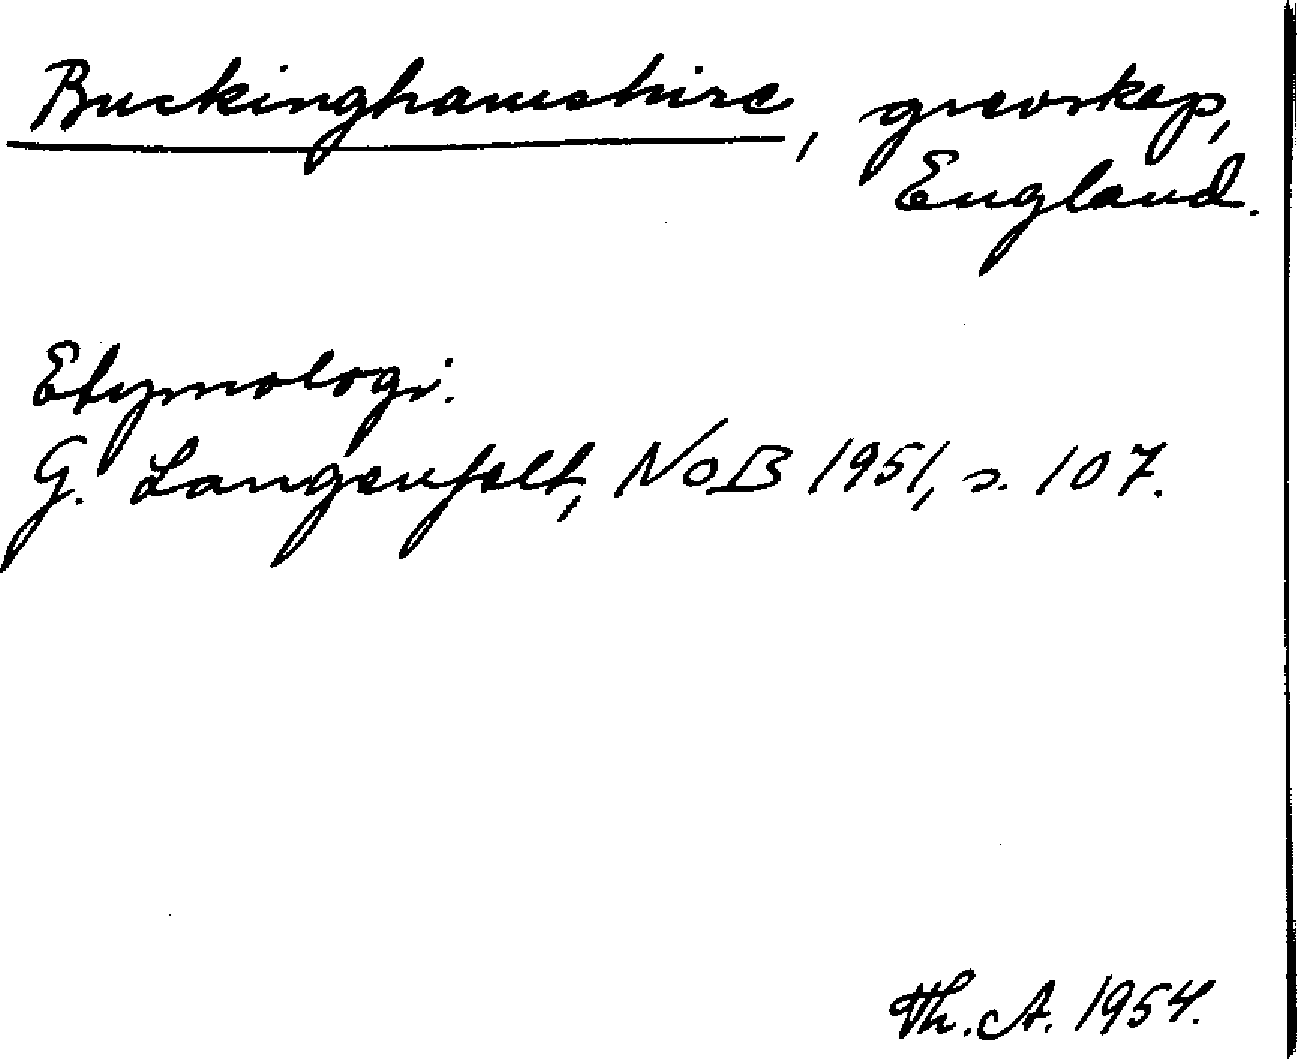 Buckinghamshire, grevskap,
England.
Etymologi.
G. Langenfelt, NoB 1951, s. 107.
Th. A. 1954.